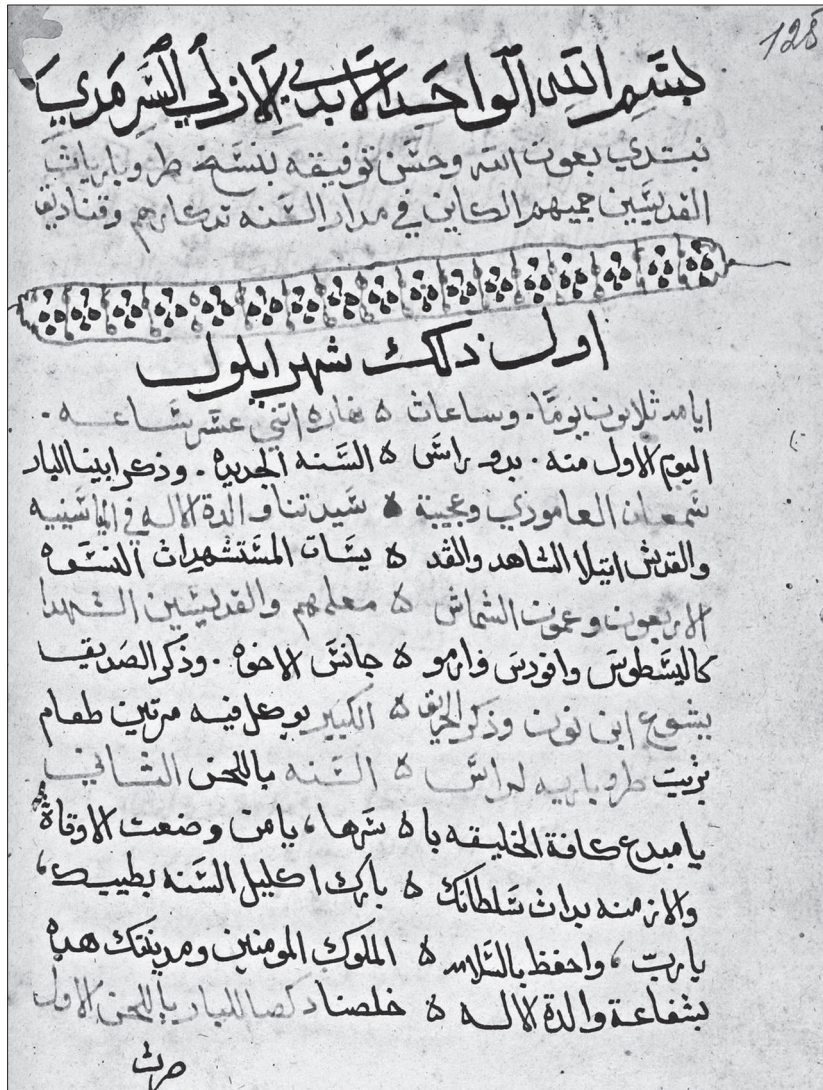 128
بسم الله الواحد الابدي الازلي السرمدي
نبتدي بعون الله وحسن توفيقه بنسخ طروباريات
القديسين جميهم الكاين في مدار السنه تدكارهم وقناديق
اول دلك شهر ايلول
ايامه ثلاثون يومًا. وساعات ه نهاره اتني عشر ساعه.
اليوم الاول منه. بدو راس ه السنه الجديده. وذكر ابينا البار
سمعان العامودي وعجيبة ه سيدتنا والدة الاله في
والقديس ايتلا الشاهد والقد ه يسات المستشهدات النسوه
الاربعون وعمون الشماس ه معلمهم والقديسين الشهدا
كاليسطوس وافودس وارمو ه جانس الاخوه. وذكر الصديق
يشوع ابن نون وذكر الحريق ه الكبير يوكل فيه مرتين طعام
بزيت طروباريه لراس ه السنه باللحن الثاني
يا مبدع كافة الخليقه با ه سرها، يا من وضعت الاوقاة
والازمنه بدات سلطانك ه بارك اكليل السنه بطيبك،
يا رب، واحفظ بالسلامه ه الملوك المومنين ومدينتك هده
بشفاعة والدة الاله ه خلصنا دكصا للبار باللحن الاول
صرت